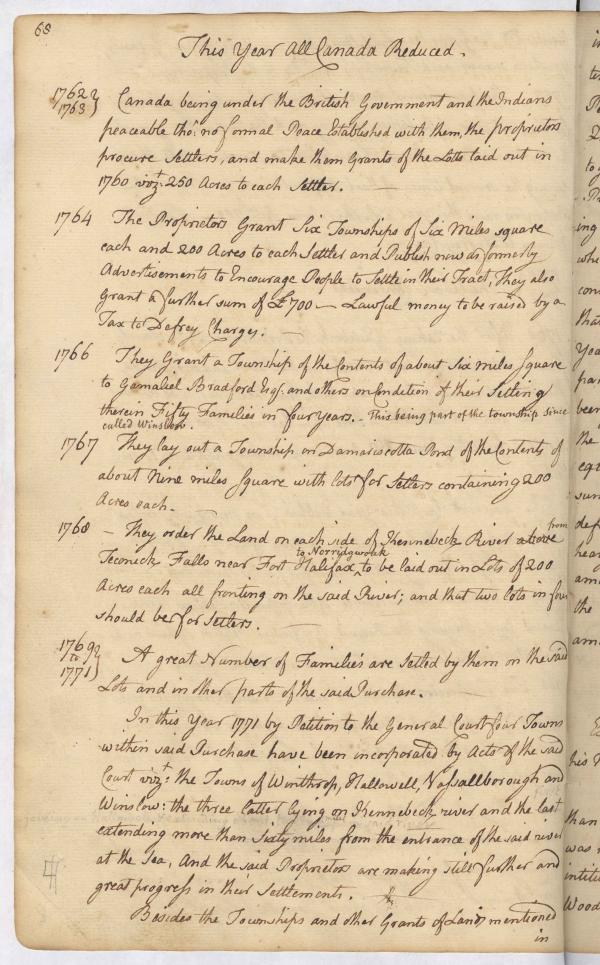 68
This Year All Canada Reduced.
1762 } Canada being under the British Government and the Indians
1763 } peaceable tho: no formal Peace Established with them, the proprietors
procure Settlers, and make them Grants of the Lotts laid out in
1760 vizt. 250 Acres to each Settler. —
1764 The Proprietors Grant Six Townships of Six Miles square
each and 200 Acres to each Settler and Publish now as formerly
Advertisements to Encourage People to Settle in their Tract, They also
Grant a further sum of £700 — Lawful money to be raised by a
Tax to Defrey Charges. —
1766 They Grant a Township of the Contents of about Six miles Square
to Gamaliel Bradford Esqr. and others on Condition of their Setling
therein Fifty Families in four Years. — This being part of the township since
called Winslow.
1767 They lay out a Township on Damariscotta Pond of the Contents of
about Nine miles Square with lots for Setlers containing 200
Acres each. —
1768 — They order the Land on each side of Kennebeck River above from
Teconick Falls near Fort Halifax ^ to Norridgwoak to be laid out in Lots of 200
Acres each all fronting on the said River; and that two lots in four
should be for Setlers. —
1769 }
to
1771 } A great Number of Families are Setled by them on the said
Lots and in other parts of the said Purchase. —
In this Year 1771 by Petition to the General Court four Towns
within said Purchase have been incorporated by Acts of the said
Court vizt: the Towns of Winthrop, Hallowell, Vassallborough and
Winslow: the three latter lying on Kennebeck river and the last
extending more than Sixty miles from the entrance of the said river
at the Sea, And the said Proprietors are making still further and
great progress in their Settlements. —
Besides the Townships and other Grants of Land mentioned
in